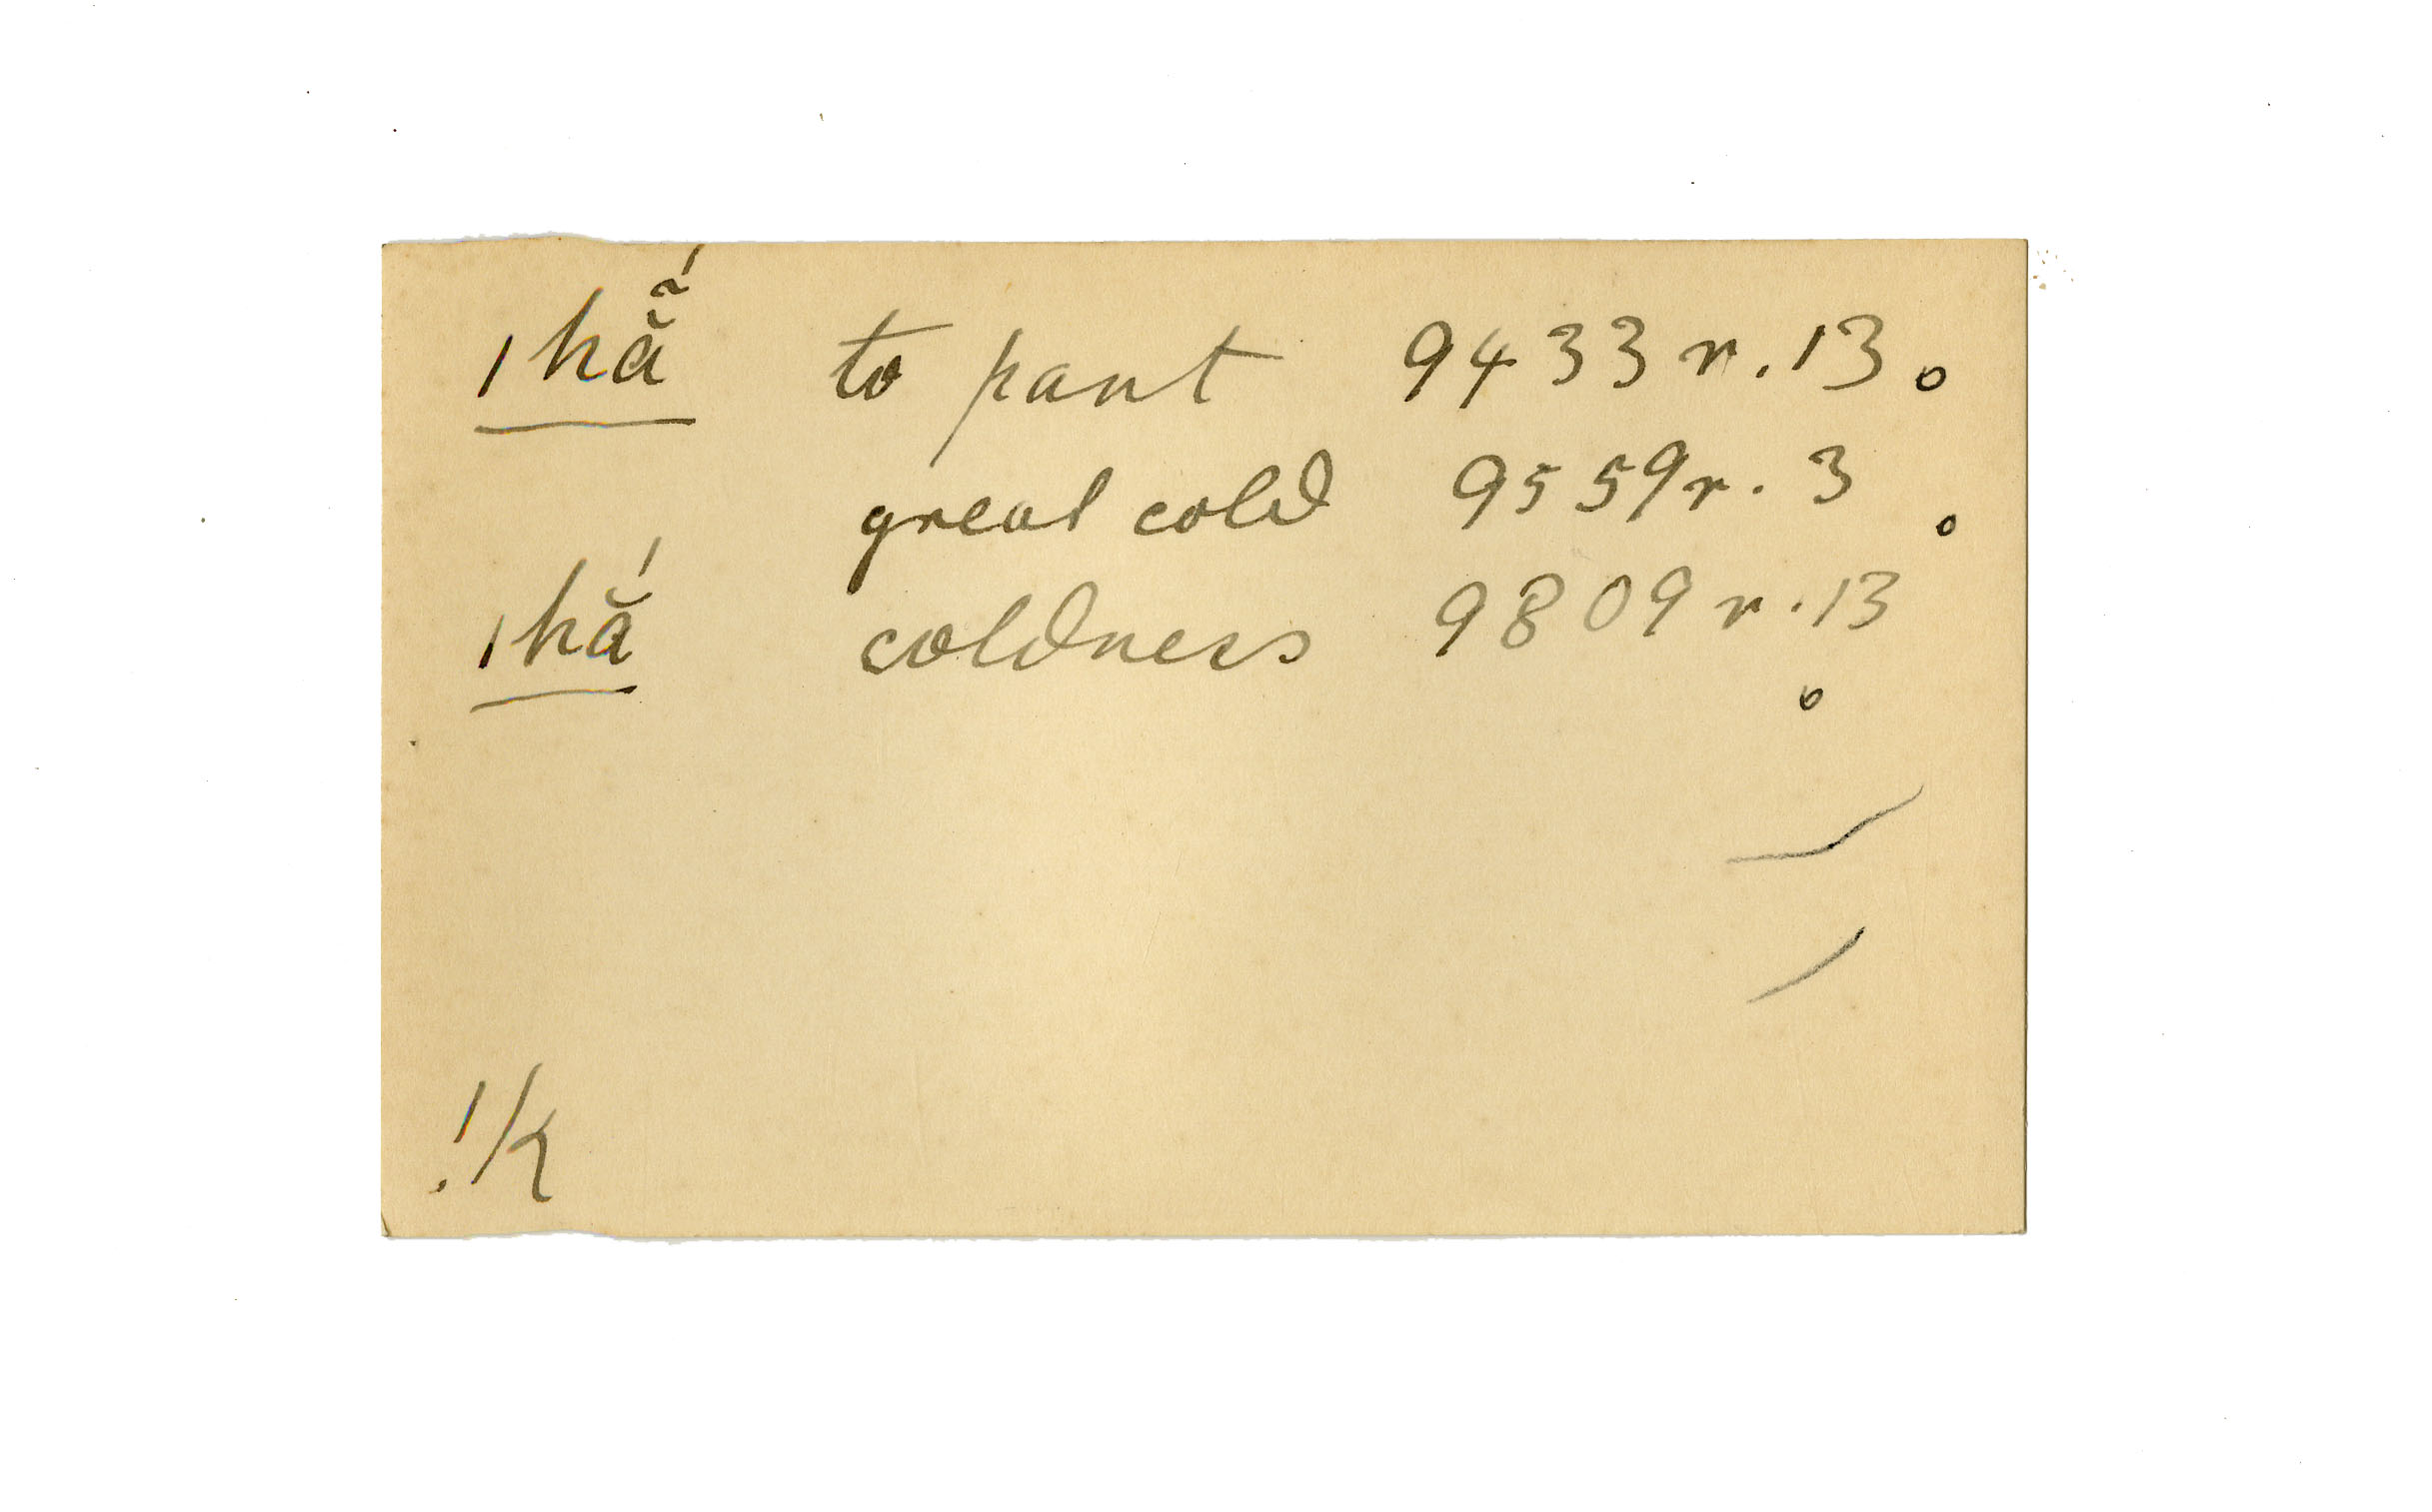 ǀhã̆́ to pant 9433 r. 13.
great cold 9559 r. 3
ǀhằ́ coldness 9809 r. 13
!k